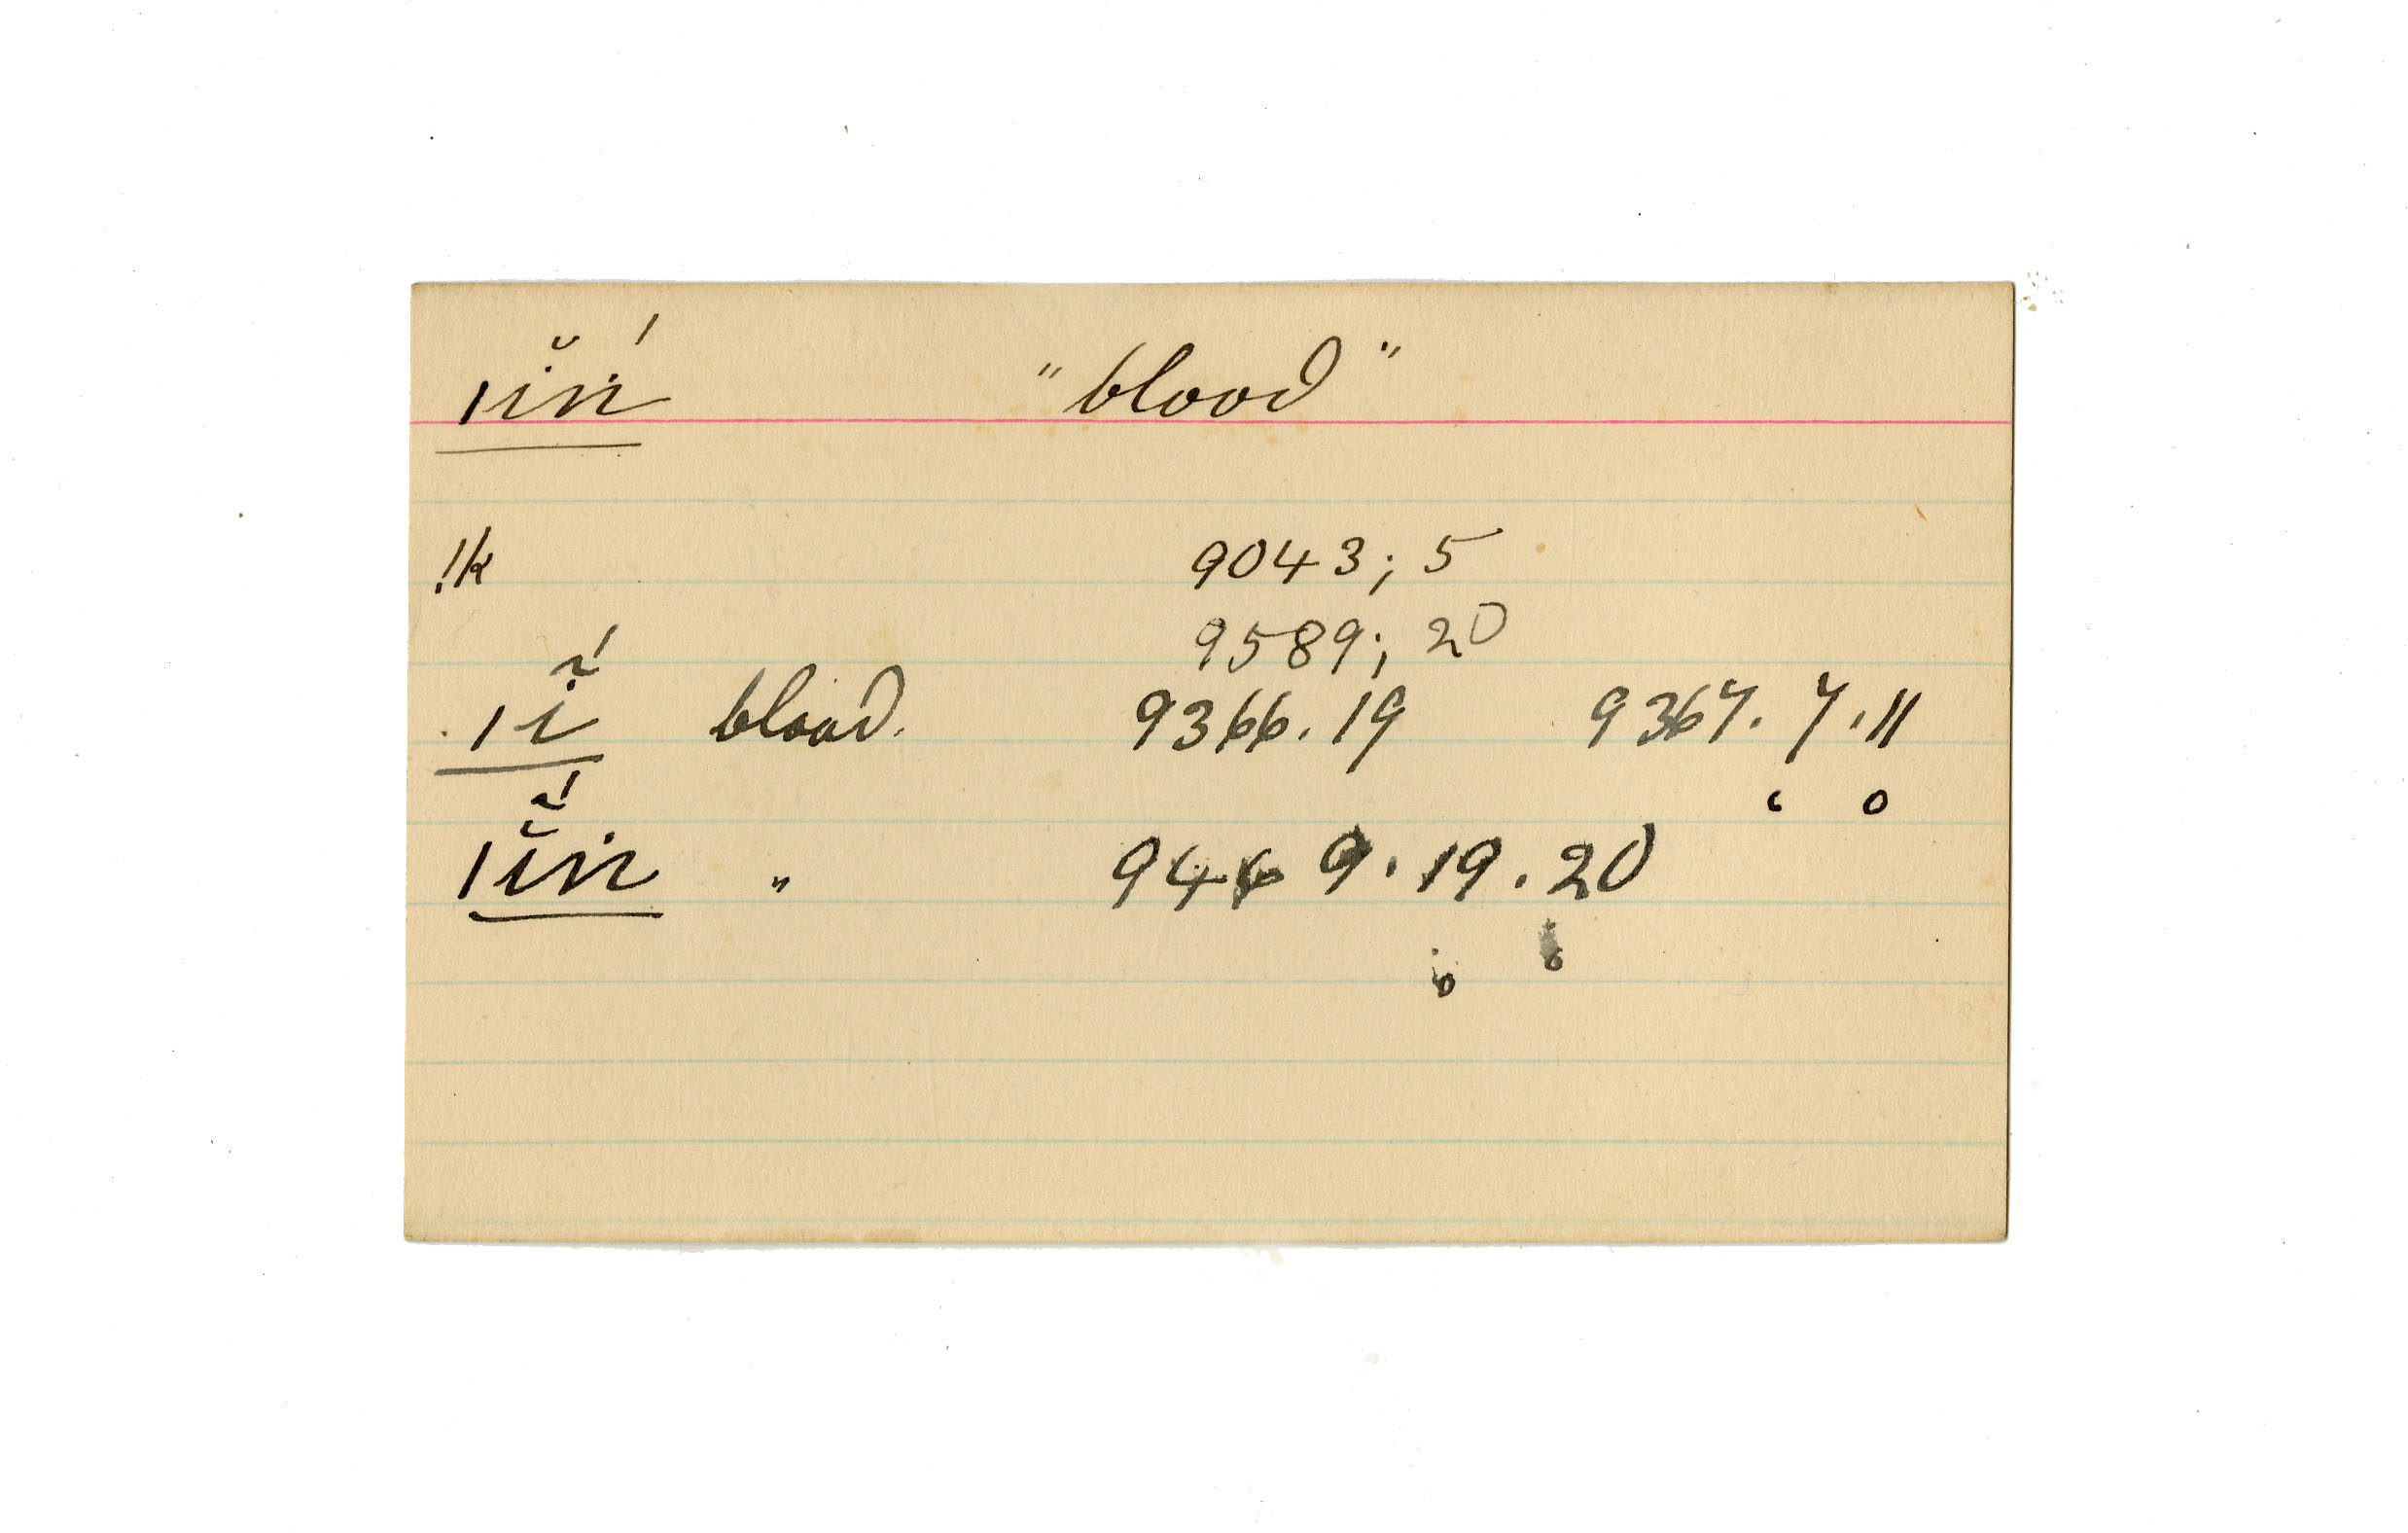 |ĭn´ "blood"
!k 9043; 5
9589; 20
|ĩ´ blood. 9366.19 9367.7.11
|ĭ̃´n " 9449.19.20